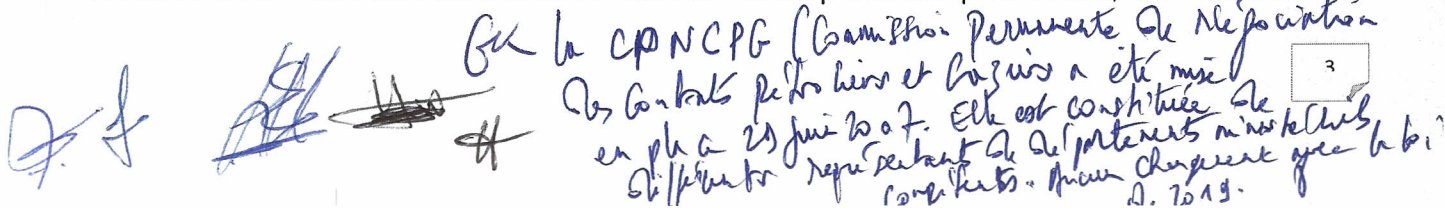 la CPPNCPG (Commission Permanente de Négociation
des Contrats pétroliers et Gaziers a été mise
3
en place 29 juin 2007. Elle est constituée de
différents représentants de départements ministériels
compétents. Aucun changement avec la loi
2019.